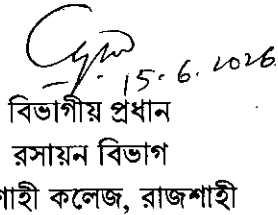 15.6.2026
বিভাগীয় প্রধান
রসায়ন বিভাগ
শাহী কলেজ, রাজশাহী